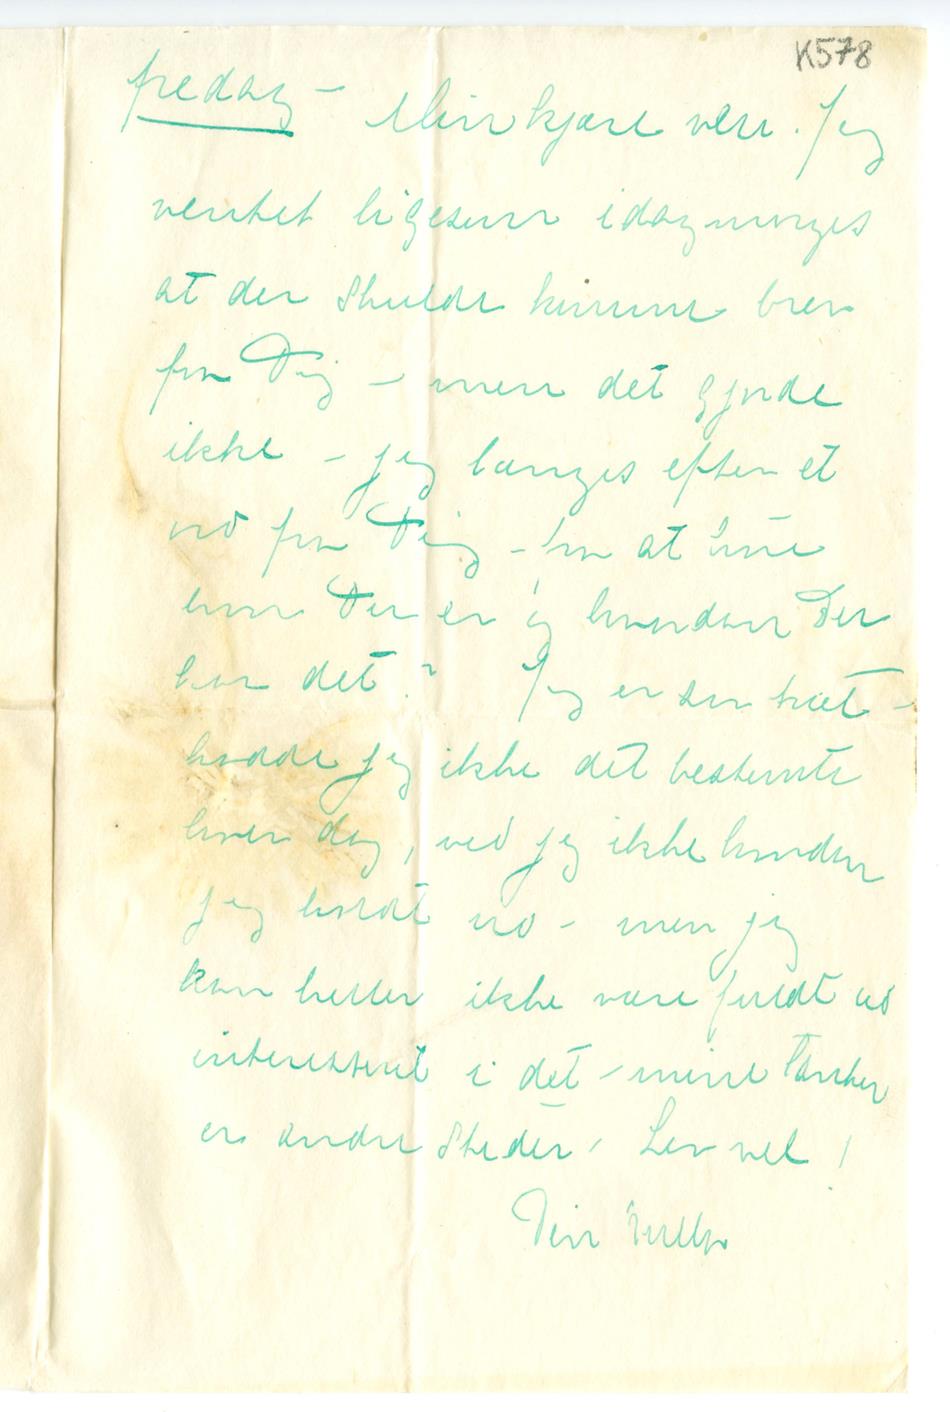 K578
fredag – Min kjære ven. Jeg
ventet ligesom idagmorges
at der skulde komme brev
fra Dig – men det gjorde
ikke – jeg længes efter et
ord fra Dig – for at höre
hvor Der er og hvordan Der
har det? Jeg er saa træt –
hadde jeg ikke det bestemte
hver dag, ved jeg ikke hvordan
jeg holdt ud – men jeg
kan heller ikke være fuldt ud
interessert i det – mine tanker
er andre steder. Lev vel!
Din